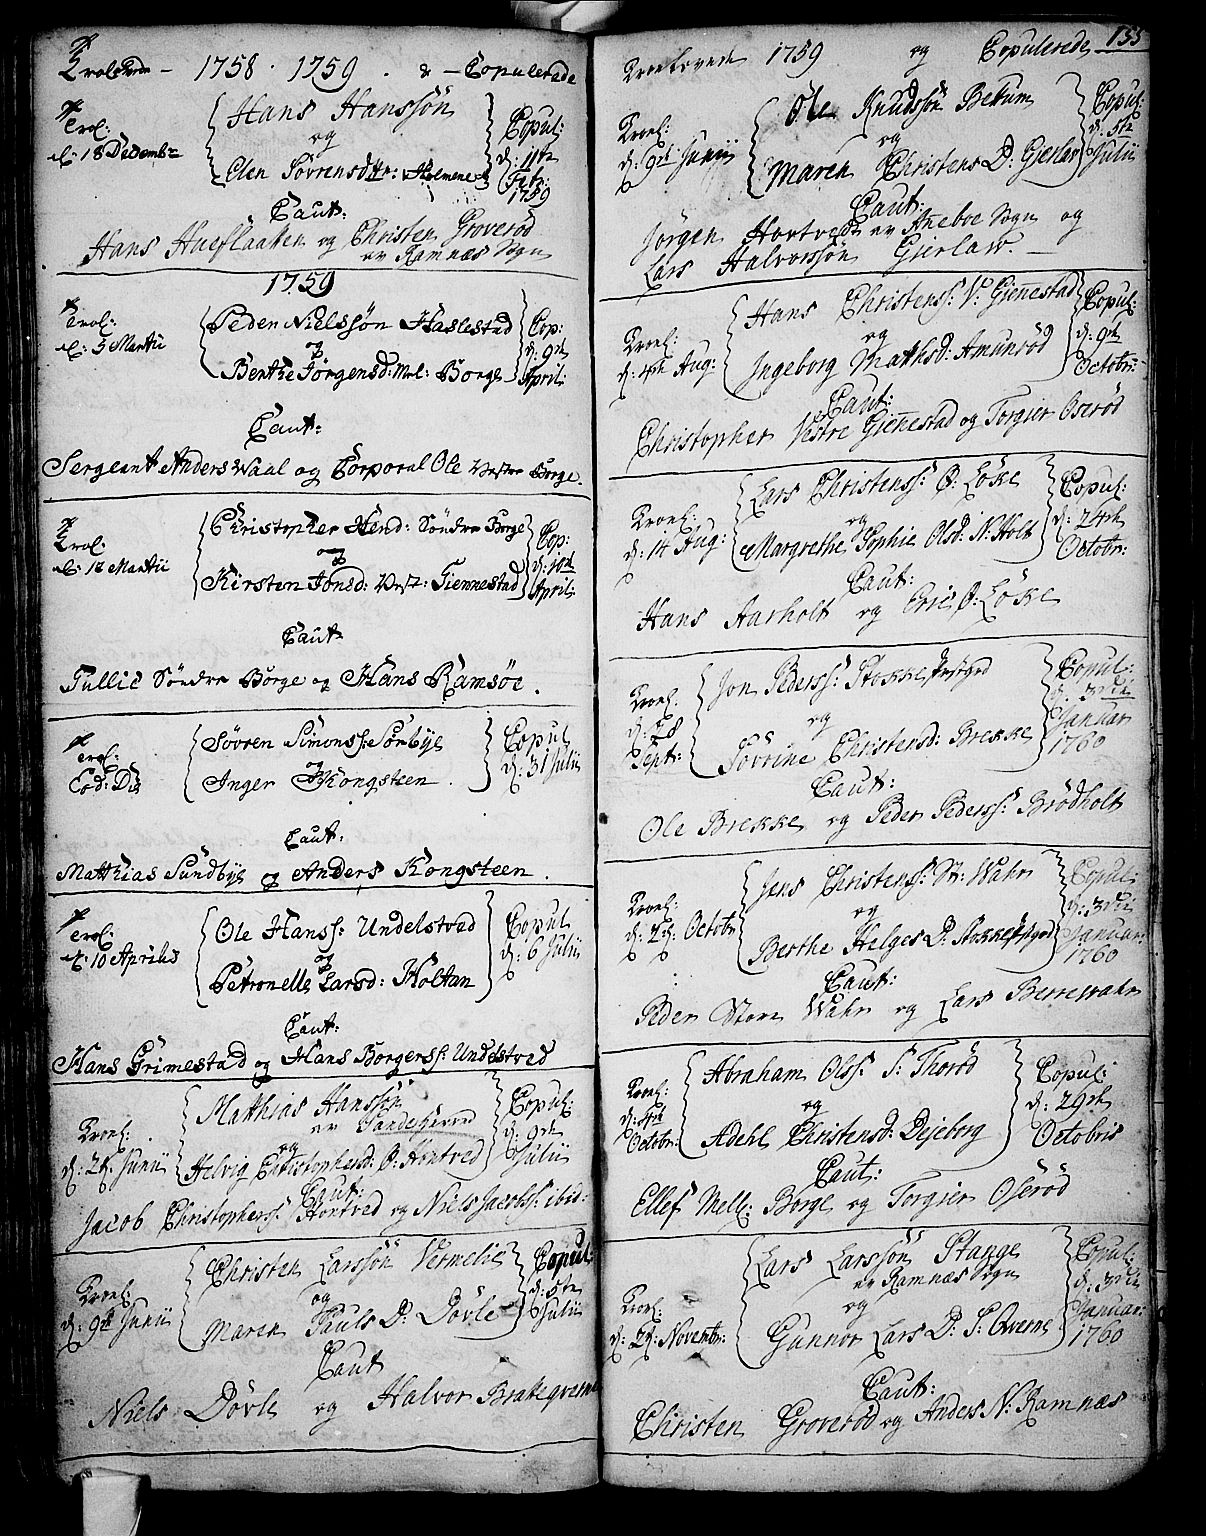 Trolovede – 1758 · 1759 . & – Copulerede
Trol:
d: 18 Decembr
Hans Hanssøn
og
Elen Sørrensdttr: Holmene
Copul:
d: 11te
Febr:
1759
Caut:
Hans Hueflaaten og Christen Groverød
ex Ramnæs Sogn
1759
Trol:
d: 5 Martii
Peden Nielssøn Haslestad
og
Berthe Jørgensd: Mel: Borge
Cop:
d: 9de
April:
Caut:
Sergeant Anders Waal og Corporal Ole Vestre Borge.
Trol:
d: 18 Martii
Christopher Hend: Søndre Borge
og
Kirsten Jonsd: Vest: Giennestad
Cop:
d: 10de
April:
Caut:
Tullic Søndre Borge og Hans Ramsøe.
Trol:
Eod: Die
Søvren Simonss: Sørbye
og
Inger Kongsteen.
Copul
d: 31 Julii
Caut:
Matthias Sundbye og Anders Kongsteen.
Trol:
d: 10 Aprilis
Ole Hanss: Undelstvad
og
Petronelle Larsd: Holtan
Copul
d: 6 Julii
Caut:
Hans Grimestad og Hans Borgerss: Undelstvad
Troel:
d: 2d: Junii
Matthias Hanssøn
ex Sandeherred
og
Helvig Christophersd: Ø: Hontved
Copul:
d: 9de
Julii
Caut:
Jacob Christopherss: Hontved og Niels Jacobss: ibid:
Troel:
d: 9de Junii
Christen Larssøn Vermelie
og
Maren Pauls D: Døvle
Copul:
d: 5te
Julii
Caut
Niels Døvle og Halvor Brateqverne
Troelovede 1759 og Copulerede 155
Troel:
d: 9de Junii
Ole Knudssøn Bettum
og
Maren Christens D: Gierlaw
Copul:
d: 5te
Julii
Caut:
Jørgen Hortvedt ex Aneboe Sogn og
Lars Halvorssøn Gierlaw. —
Troel:
d: 4de Aug:
Hans Christenss: V: Giennestad
og
Ingeborg Mathsd: Amunrød
Copul:
d: 9de
Octobr:
Caut:
Christopher Vestre Giennestad og Torgier Oserød
Troel:
d: 14 Aug:
Lars Christenss: Ø: Løke
og
Margrethe Sophie Olsd: N: Holt
Copul:
d: 24de
Octobr:
Caut:
Hans Aarholt og Eric Ø: Løke
Troel.
d: 28
Sept:
Jon Pederss: Stokke Præstgrd
og
Søvrine Christensd: Brekke
Copul:
d: 3die
Januar
1760
Caut:
Ole Brekke og Peder Pederss: Brødholt
Troel:
d: 2d: Octobr
Jens Christenss: St: Wahr
og
Berthe Helges D: Stokke Prstgrd
Copul:
d: 3die
Januar:
1760
Caut:
Peder Store Wahr og Lars Berrewahr
Troel:
d: 4de
Octobr:
Abraham Olss: S: Thorød
og
Adehl Christensd: Dejeborg
Copul:
d: 29de
Octobris
Caut:
Ellef Melle: Borge og Torgier Oserød
Troel:
d: 2d: Novembr:
Lars Larssøn Stange
ex Ramnæs Sogn
og
Gunnor Lars D: S: Qverne
Copul:
d: 3die
Januar:
1760
Caut:
Christen Groverød og Anders N: Ramnæs